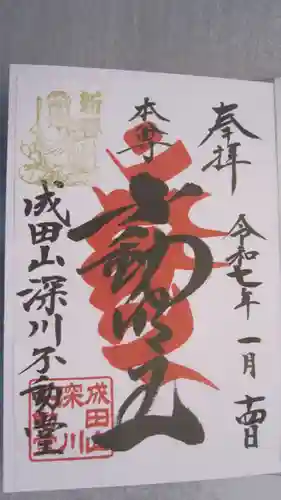 奉拝
令和七年 一月 十四日
本尊
不動明王
成田山深川不動堂
成田山
深川